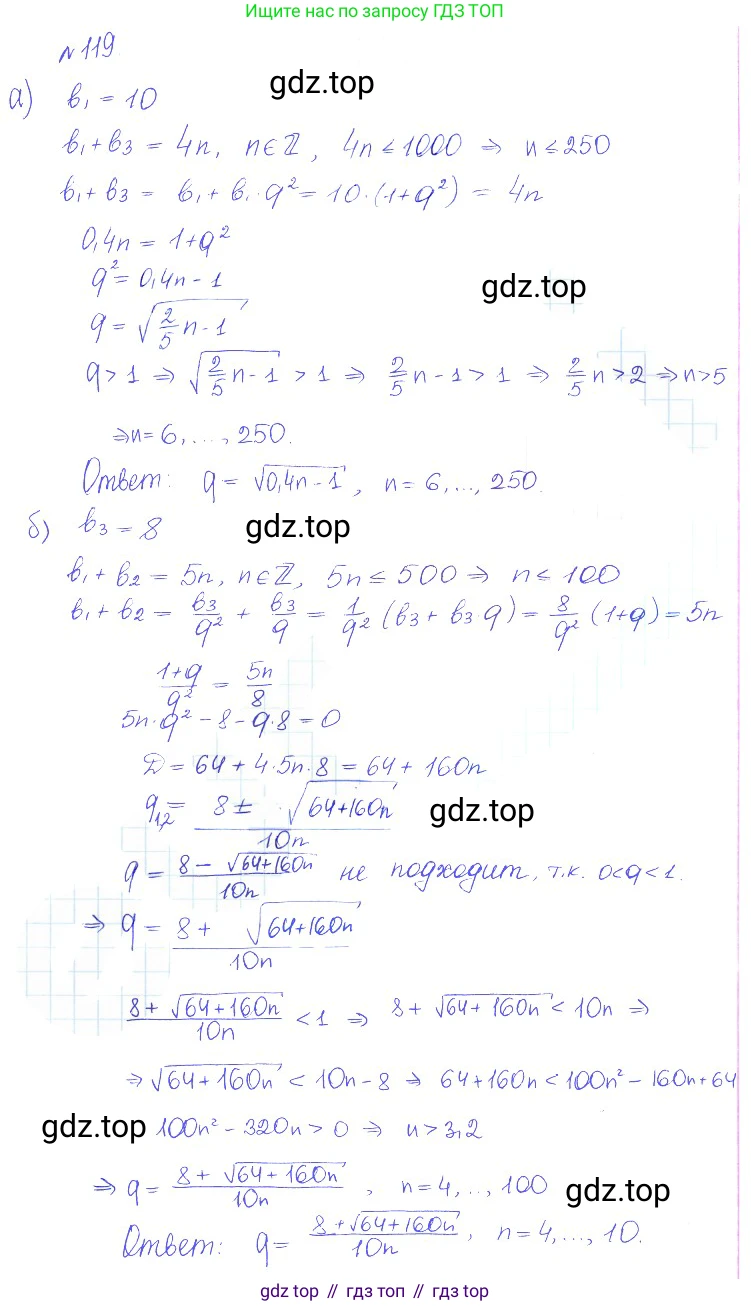 Ищите нас по запросу ГДЗ ТОП
№119
gdz.top
а) b₁ = 10
b₁+b₃ = 4n, n∈ℤ, 4n≤1000 ⇒ n≤250
b₁+b₃ = b₁+b₁·q² = 10·(1+q²) = 4n
0,4n = 1+q²
q² = 0,4n-1
gdz.top
q = √(2/5 n-1)
q>1 ⇒ √(2/5 n-1) > 1 ⇒ 2/5 n-1 > 1 ⇒ 2/5 n > 2 ⇒ n>5
⇒ n = 6,...,250.
Ответ: q = √(0,4n-1), n = 6,..., 250.
б) b₃ = 8
gdz.top
b₁+b₂ = 5n, n∈ℤ, 5n ≤ 500 ⇒ n ≤ 100
b₁+b₂ = b₃/q² + b₃/q = 1/q² (b₃+b₃·q) = 8/q² (1+q) = 5n
(1+q)/q² = 5n/8
5n·q² - 8 - q·8 = 0
D = 64 + 4·5n·8 = 64 + 160n
q₁,₂ = (8 ± √(64+160n))/10n
gdz.top
q = (8 - √(64+160n))/10n не подходит, т.к. 0<q<1.
⇒ q = (8 + √(64+160n))/10n
(8 + √(64+160n))/10n < 1 ⇒ 8 + √(64+160n) < 10n ⇒
⇒ √(64+160n) < 10n - 8 ⇒ 64+160n < 100n² - 160n + 64
gdz.top
100n² - 320n > 0 ⇒ n > 3,2
⇒ q = (8 + √(64+160n))/10n, n = 4,..., 100
gdz.top
Ответ: q = (8 + √(64+160n))/10n, n = 4,..., 10.
gdz top // гдз топ // gdz top // гдз топ